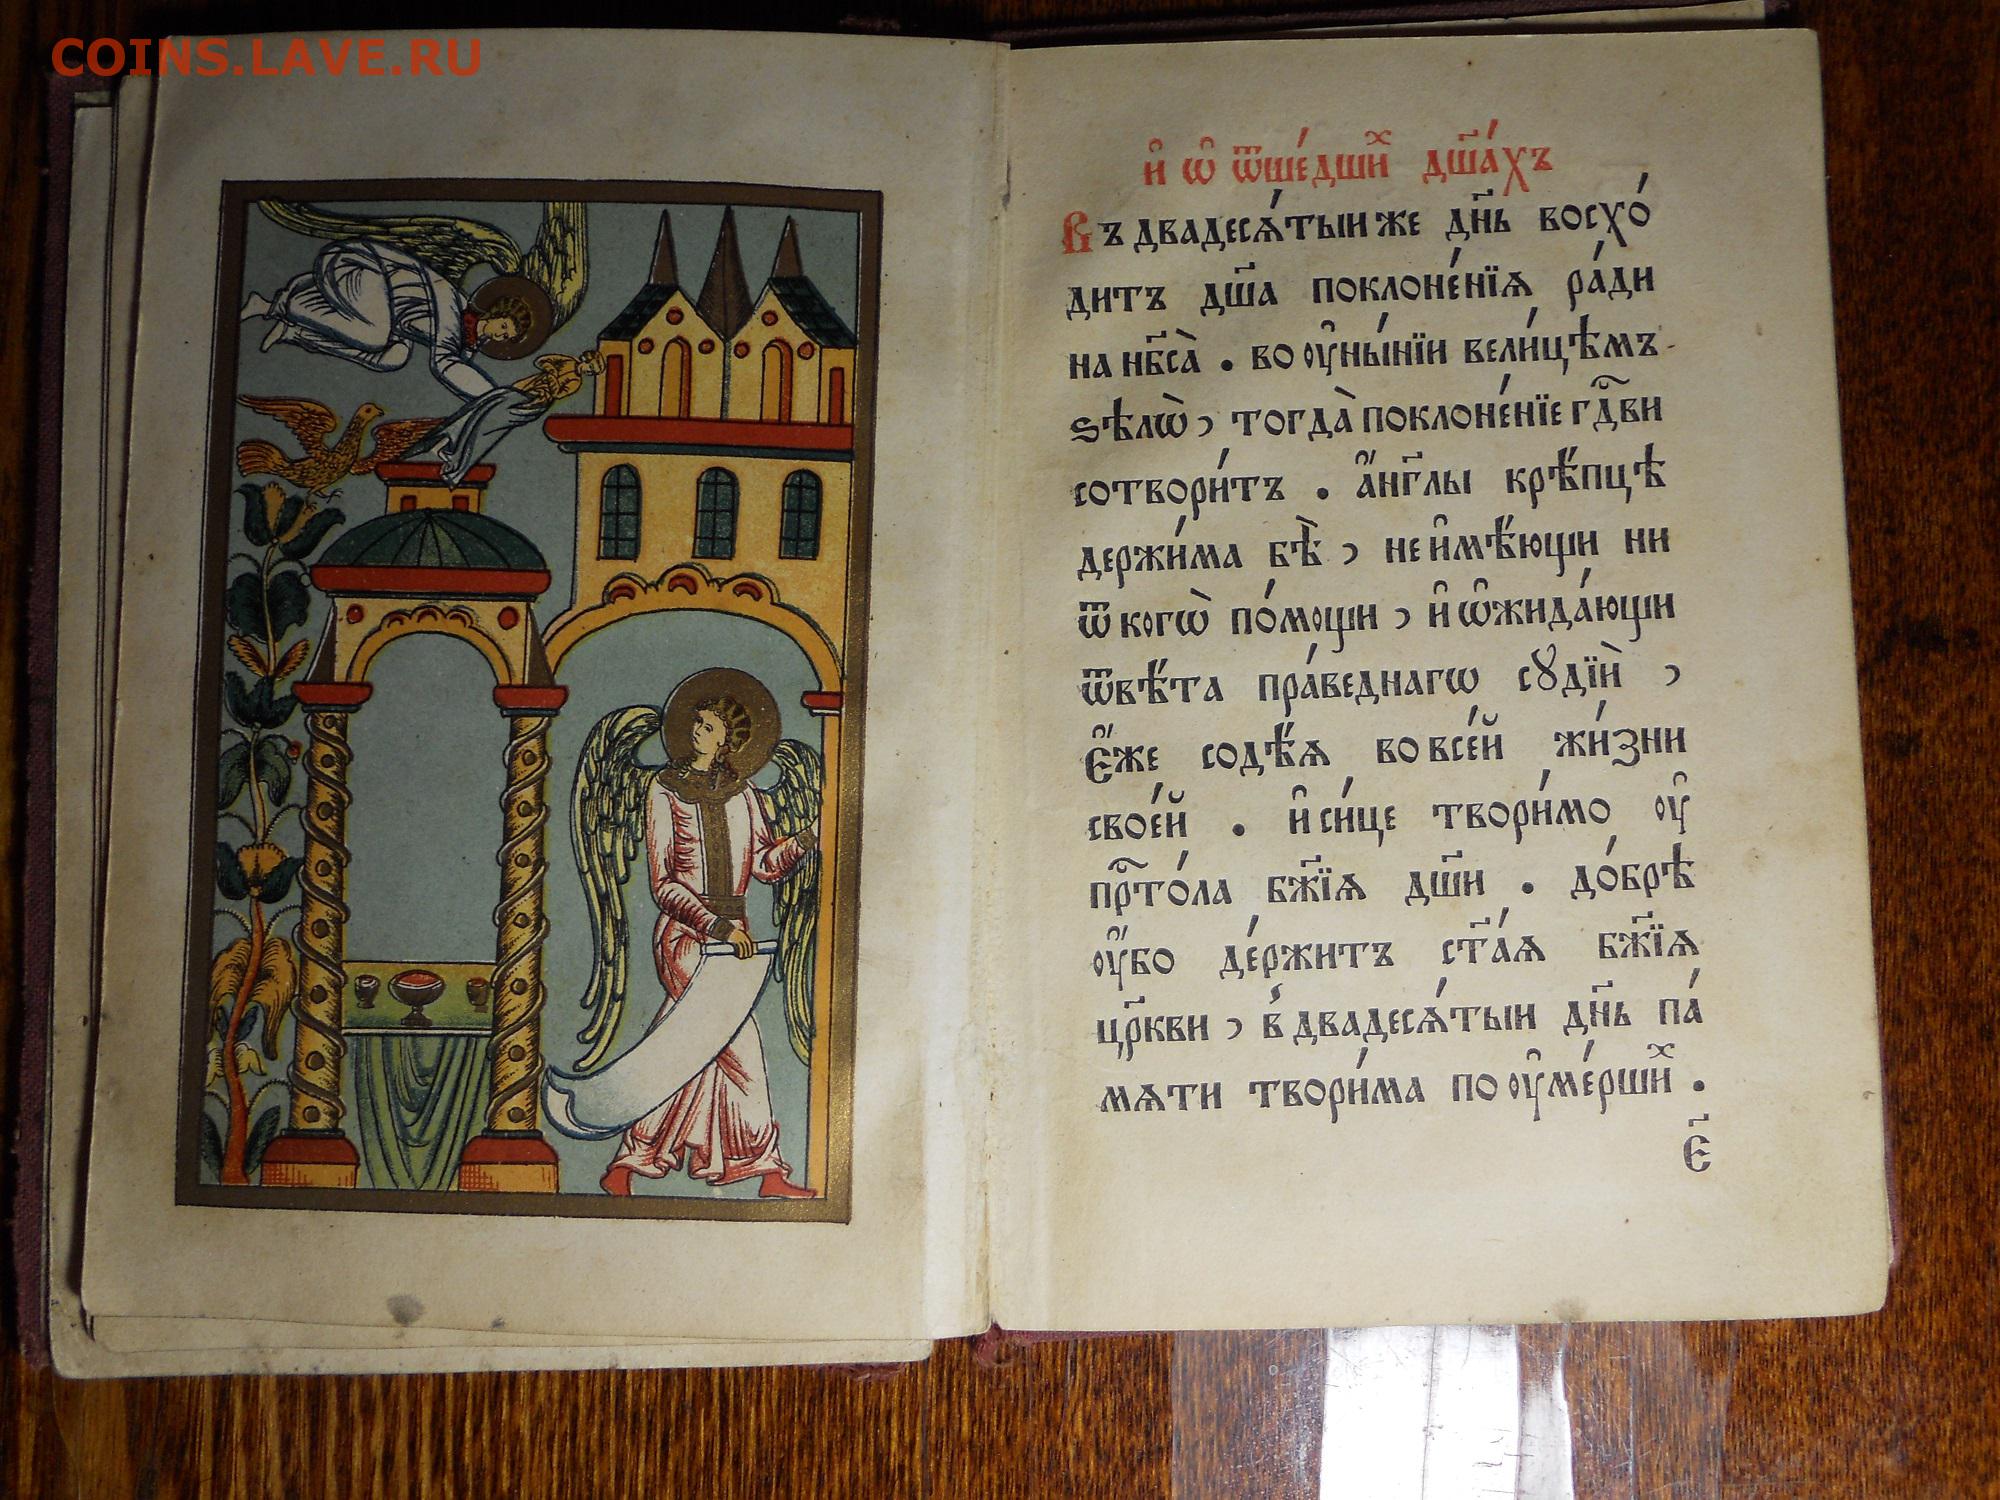 COINS.LAVE.RU
и҆ ѡ҆ ѿше́дши́х дш҃а́хъ
Въ двадеся́тыи же дн҃ь восхо́
дитъ дш҃а поклоне́нїѧ ра́ди
на нб҃са̀ . во ᲂу҆ны́нїи вели́цѣмъ
ѕѣлѡ̀ , тогда̀ поклоне́нїе гдⷭ҇ви
сотвори́тъ . а҆́нг҃лы крѣ́пцѣ
держи́ма бѣ̀ , не и҆мѣ́ющи ни
ѿ когѡ̀ по́мощи , и҆ ѡ҆жида́ющи
ѿвѣ́та пра́веднагѡ сꙋдїѝ ,
є҆́же содѣ́ѧ во все́й жи́зни
свое́й . и҆ си́це твори́мо ᲂу҆
прⷭ҇то́ла бж҃їѧ дш҃и . до́брѣ
ᲂу҆́бо де́ржитъ ст҃а́ѧ бж҃їѧ
цр҃кви , в̾ двадесѧ́тыи дн҃ь па́
мѧти твори́ма по ᲂу҆ме́рши́х .
є҃